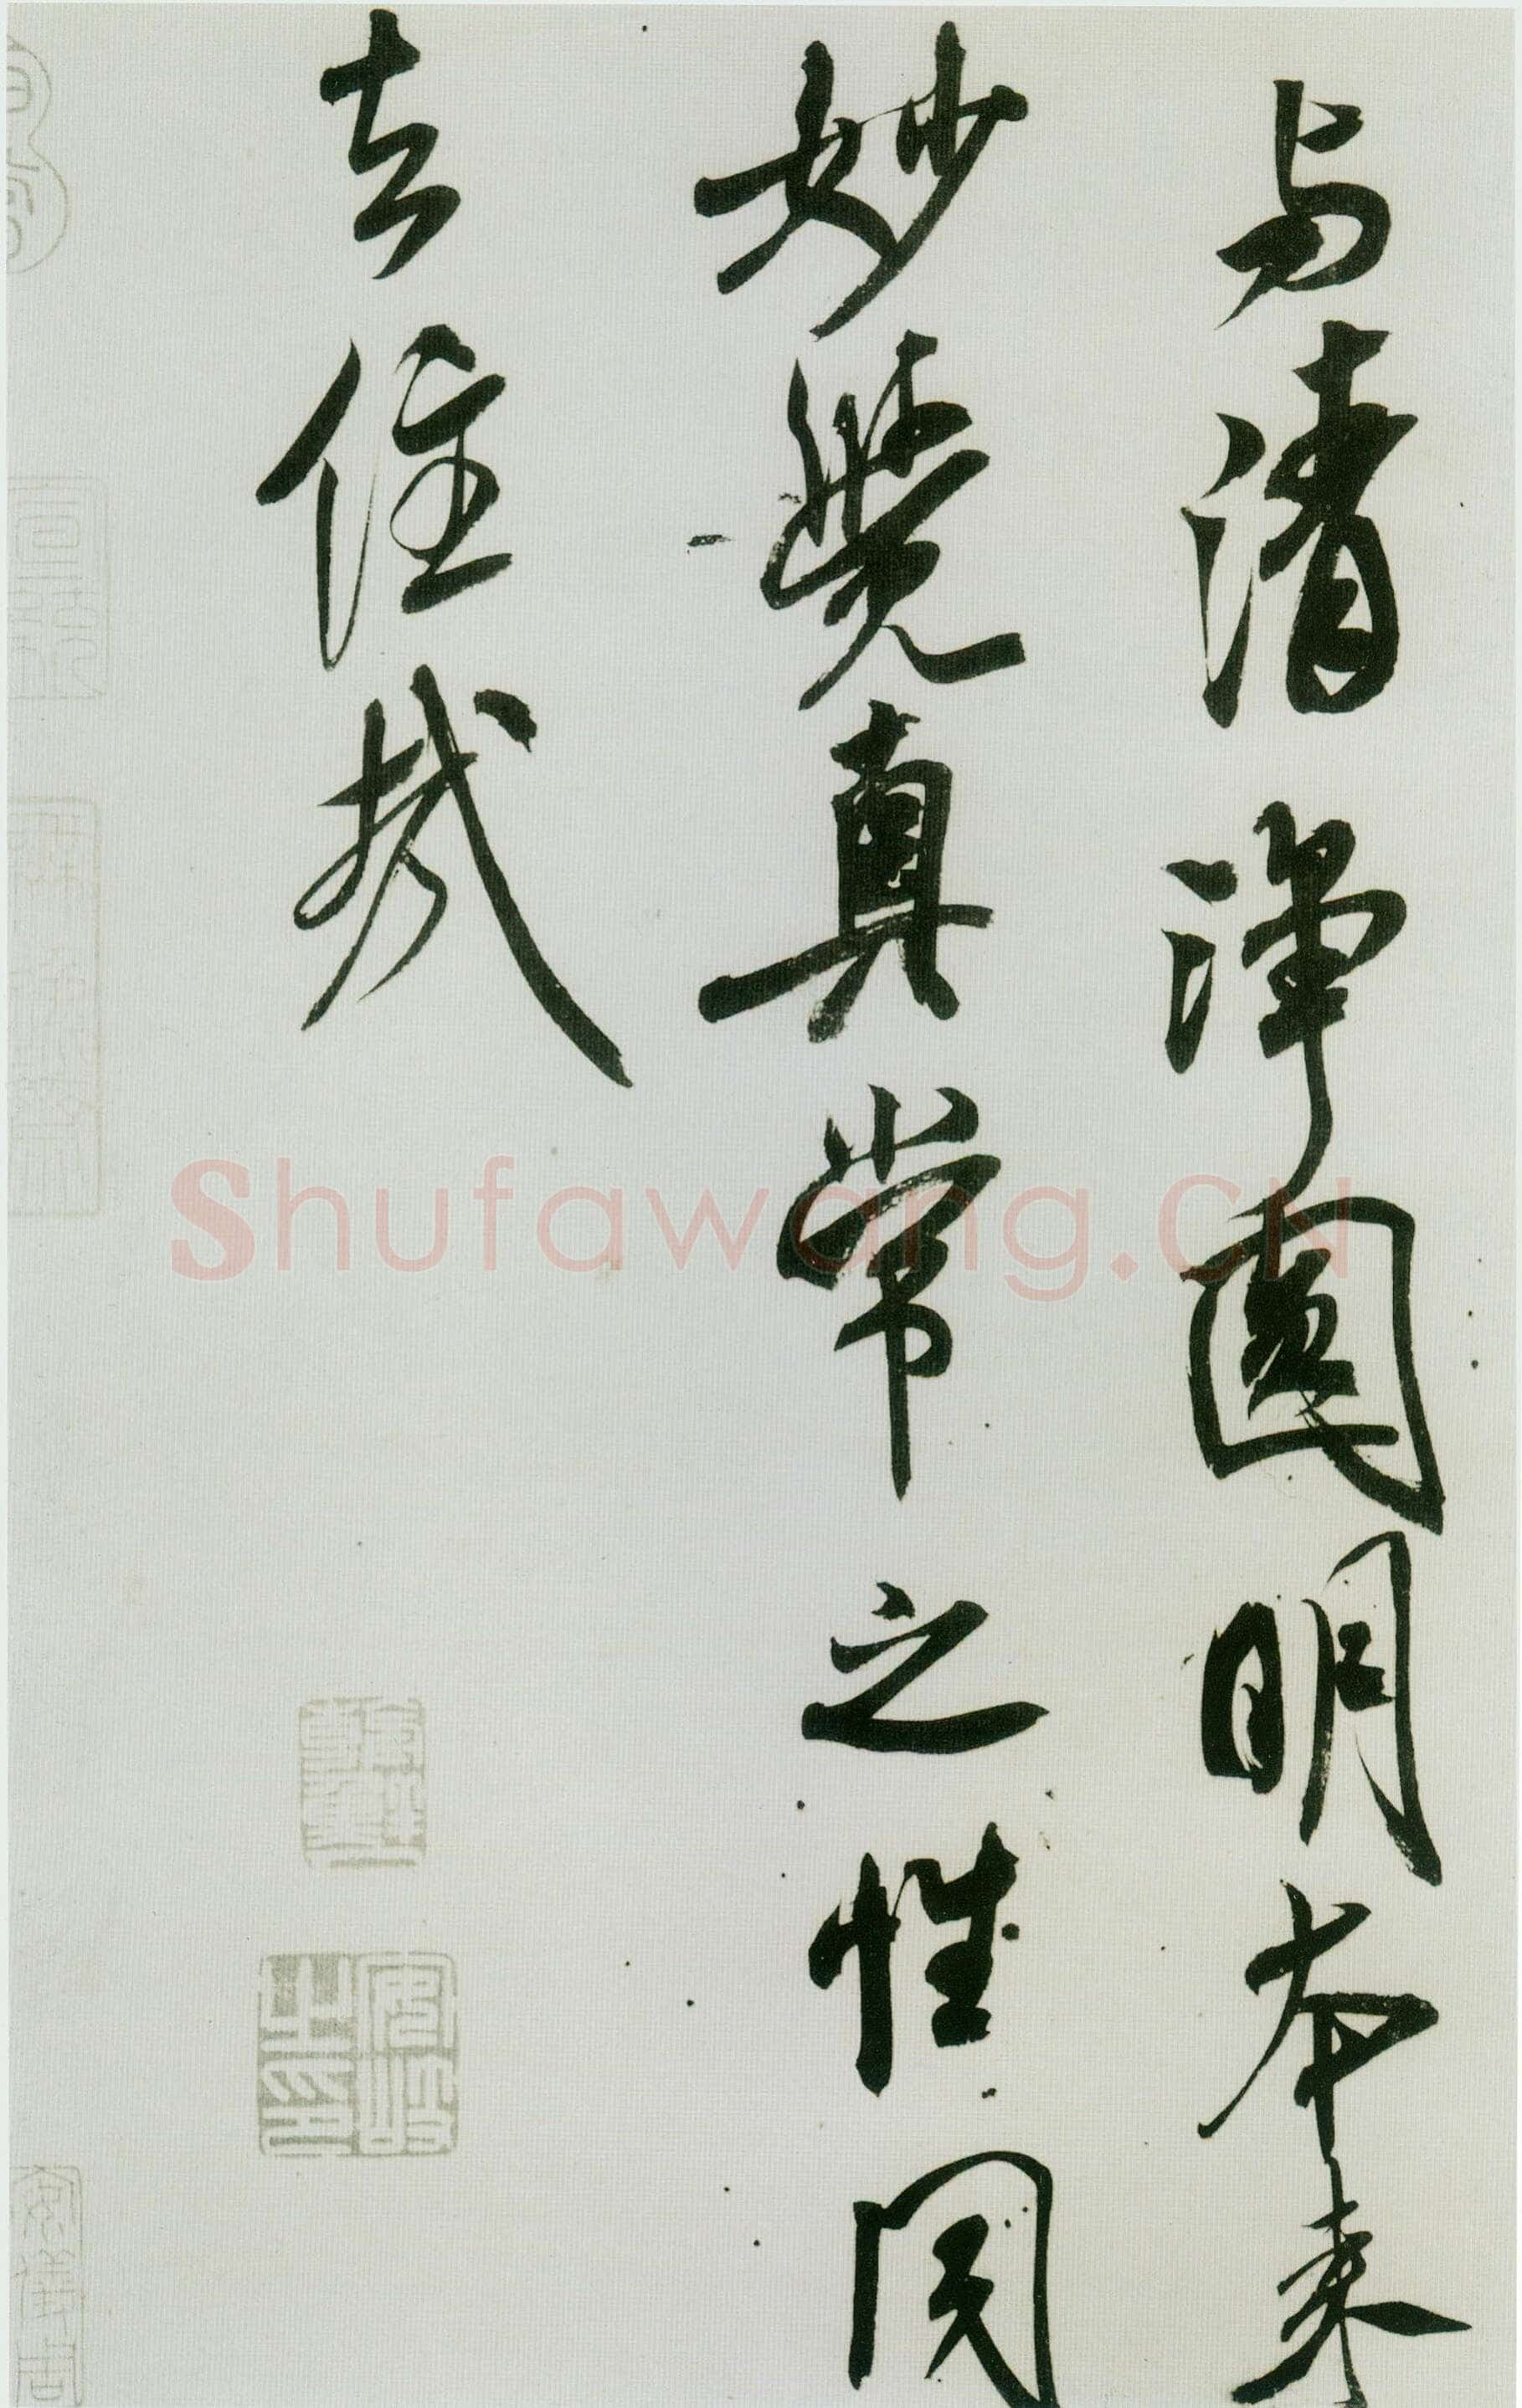 与清淨圓明本来
妙覺真常之性同
去住哉
Shufawang.CN